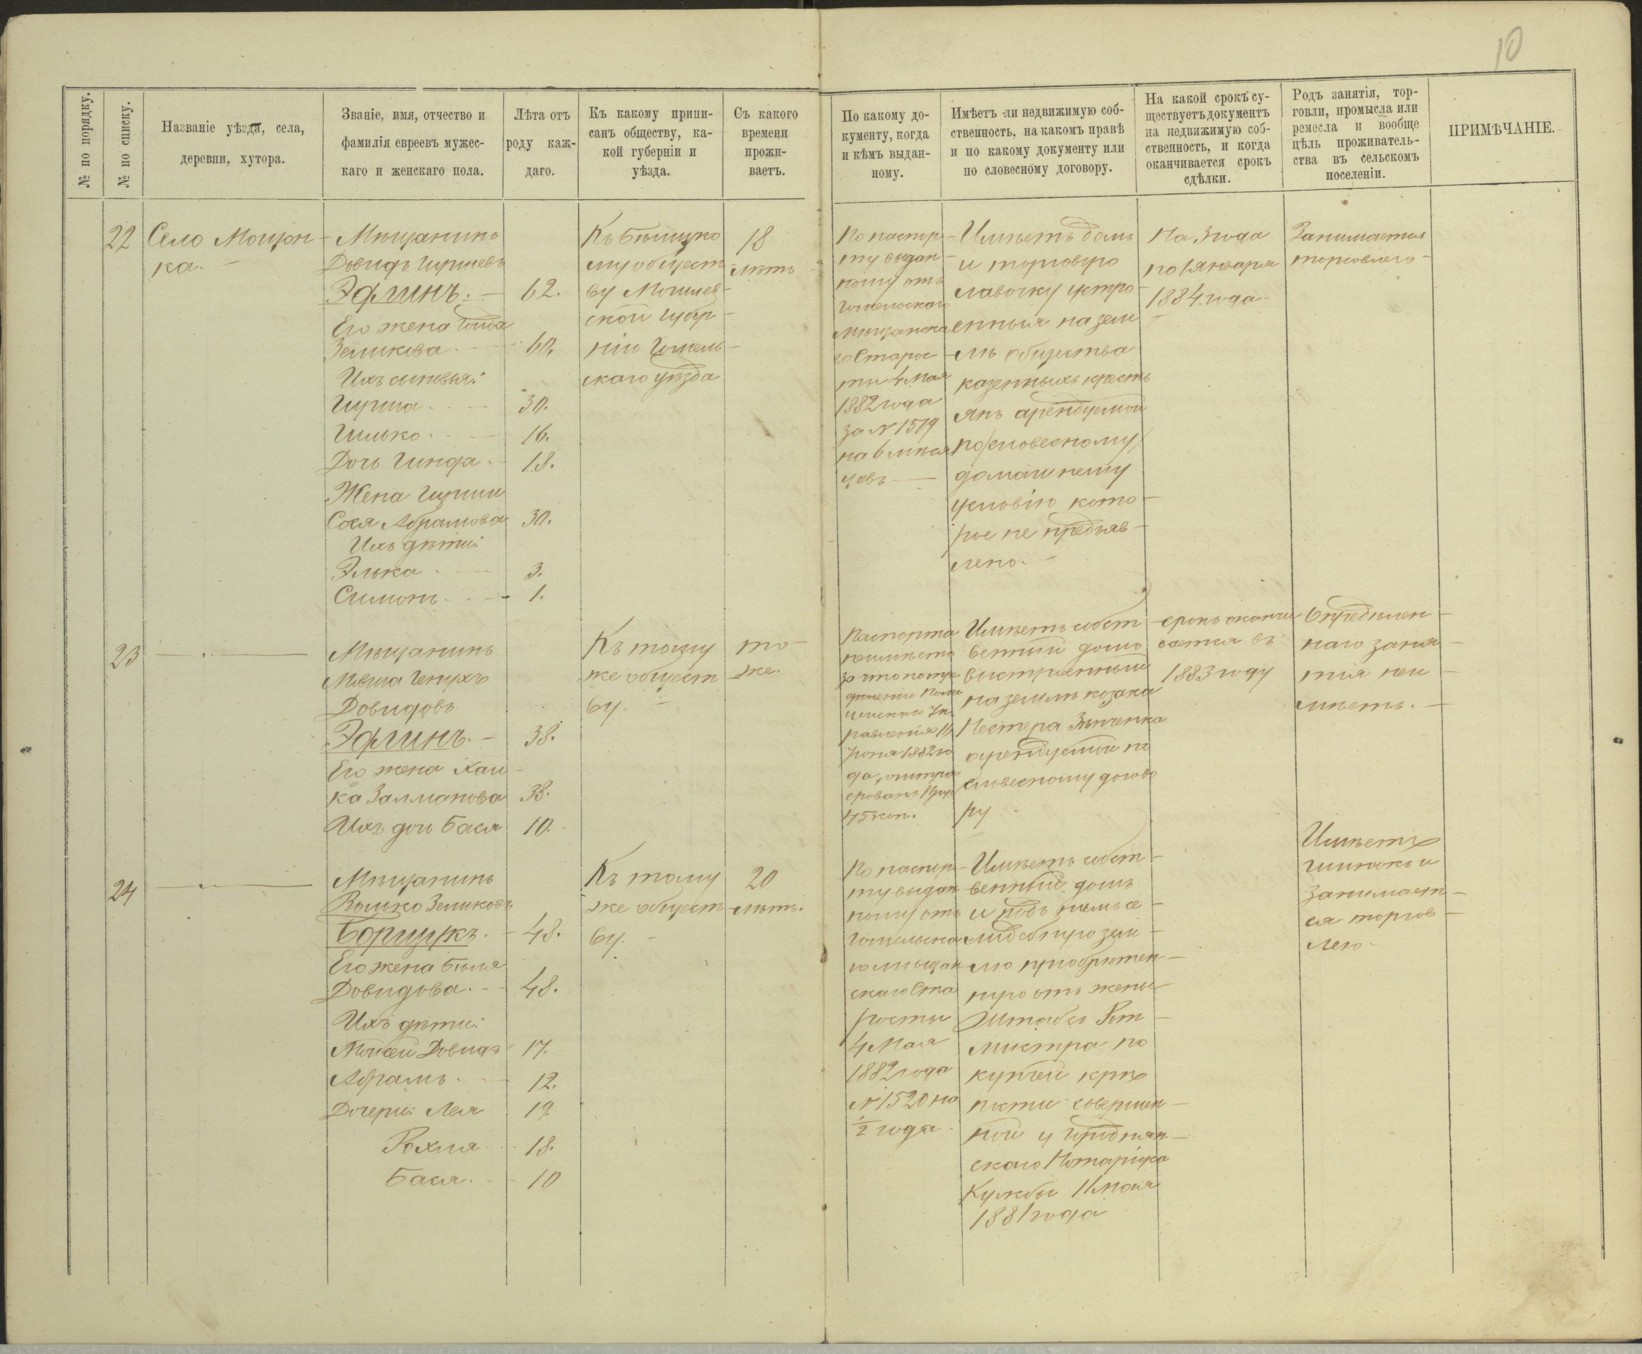 10
№ по порядку.
№ по списку.
Названіе уѣзда, села,
деревни, хутора.
Званіе, имя, отчество и
фамилія евреевъ мужес-
каго и женскаго пола.
Лѣта отъ
роду каж-
даго.
Къ какому припи-
санъ обществу, ка-
кой губерніи и
уѣзда.
Съ какого
времени
прожи-
ваетъ.
По какому до-
кументу, когда
и кѣмъ выдан-
ному.
Имѣетъ ли недвижимую соб-
ственность, на какомъ правѣ
и по какому документу или
по словесному договору.
На какой срокъ су-
ществуетъ документъ
на недвижимую соб-
ственность, и когда
оканчивается срокъ
сдѣлки.
Родъ занятія, тор-
говли, промысла или
ремесла и вообще
цѣль проживатель-
ства въ сельскомъ
поселеніи.
ПРИМѢЧАНІЕ.
22
Село
ка.
Мѣщанинъ
Довидъ Гиршевъ
Эфлинъ. 62.
Его жена
Зеликова 60.
Ихъ сыновья:
Гирша 30.
Гилько 16.
Дочь Гинда 18.
Жена Гирши
Сося Абрамова 30.
Ихъ дѣти:
Элька 3.
Симонъ 1.
Къ Бѣлицко
му общест
ву Могилев-
ской губер-
ніи Гомель-
скаго уѣзда
18
лѣтъ
По паспор-
ту выдан-
ному отъ
Гомельскаго
Мѣщанска
го Старос-
ты 4 Мая
1882 года
за № 1519
на 6 мѣся
цевъ
Имѣетъ домъ
и торговую
лавочку устро-
енныя на зем
лѣ общества
казенныхъ кресть
янъ арендуемой
по словесному
домашнему
условію кото-
рое не предъяв-
лено.
На 3 года
по 1 Января
1884 года
Занимается
торговлею
23
Мѣщанинъ
Довидовъ
Эфлинъ. 38.
Его жена Хай-
ка Залманова 38.
Ихъ дочь Бася 10.
Къ тому
же общест
ву.
то-
же.
Паспорта
неимѣетъ
1882 го
да,
45 коп.
Имѣетъ собст
венный домъ
выстроенный
на землѣ козака
Нестера
арендуемой по
словесному догово
ру
срокъ оканчи
вается въ
1883 году
Опредѣлен-
наго заня-
тія неи-
мѣетъ.
24
Мѣщанинъ
Зеликовъ
Борщукъ. 48.
Его жена Бейля
Довидова. 48.
Ихъ дѣти:
Мойсей Довидъ 17.
Абрамъ. 12.
Дочери: Лея 19
Рохля 18.
Бася. 10
Къ тому
же общест
ву.
20
лѣтъ.
По паспор-
ту выдан
ному отъ
Гомельска
го мѣщан
скаго Ста
росты
4 Мая
1882 года
№ 1520 на
1/2 года
Имѣетъ собст-
венный домъ
и подъ нимъ
зем-
лю пріобрѣтен-
ную отъ жены
Штабсъ Рот-
мистра по
купчей крѣ
пости совершен-
ной у Городнян-
скаго Нотаріуса
11 Мая
1881 года
Имѣетъ
шинокъ и
занимает-
ся торгов-
лею.